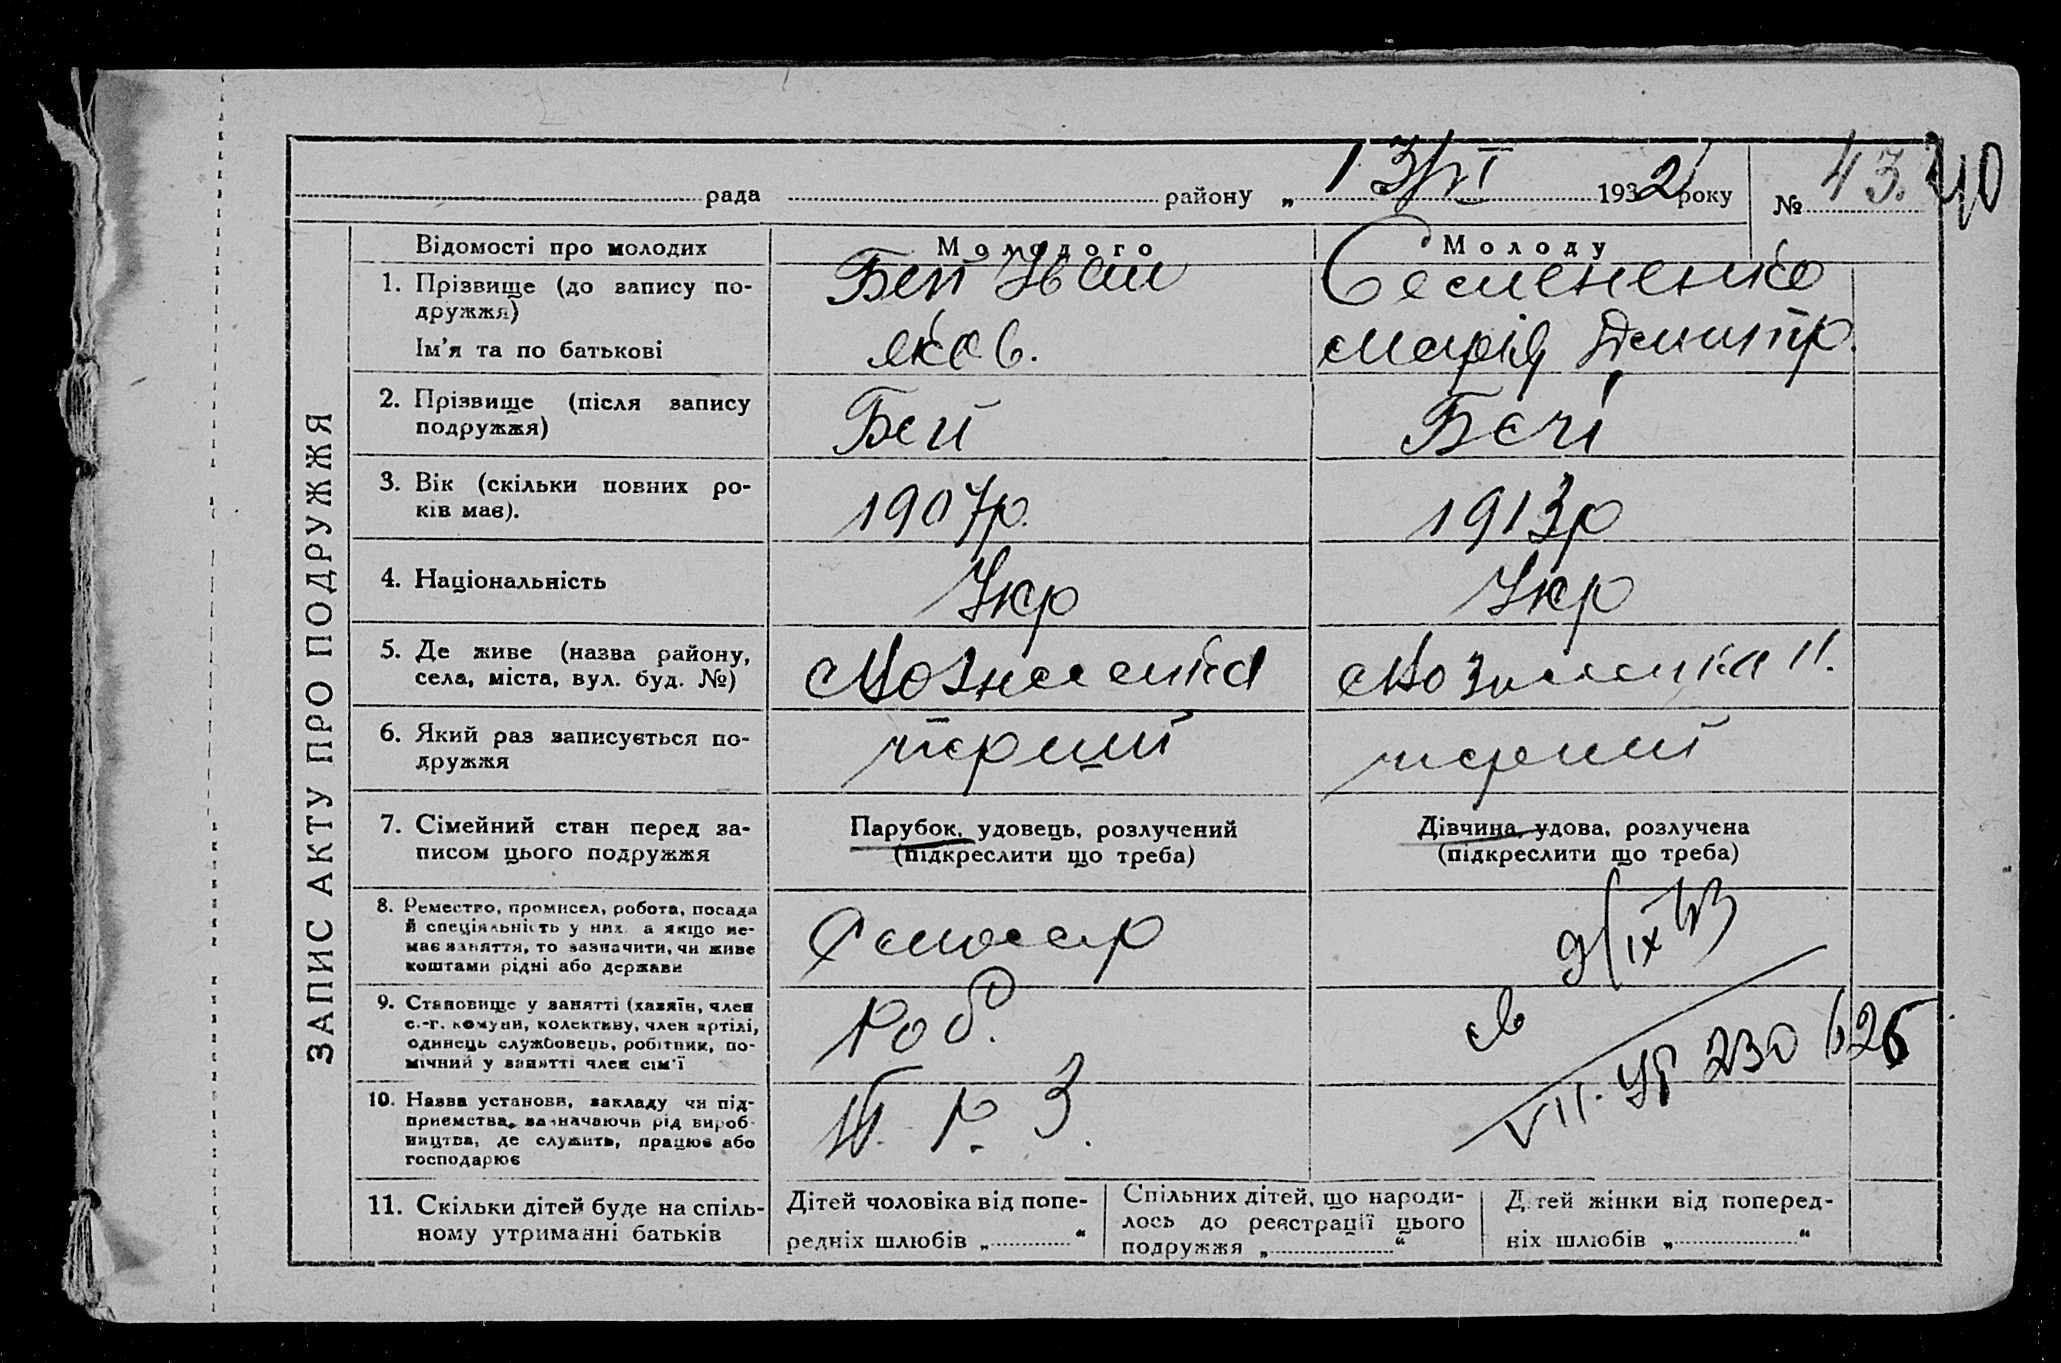 рада району „ 13/VI 1932 року № 43. 40
ЗАПИС АКТУ ПРО ПОДРУЖЖЯ
Відомості про молодих Молодого Молоду
1. Прізвище (до запису по-
дружжя)
Ім'я та по батькові
Бей Іван
яков.
Семененко
Марія Дмитр.
2. Прізвище (після запису
подружжя)
Бей
Бей
3. Вік (скільки повних ро-
ків має).
1907р.
1913р
4. Національність
Укр
Укр
5. Де живе (назва району,
села, міста, вул. буд. №)
6. Який раз записується по-
дружжя
перший
перший
7. Сімейний стан перед за-
писом цього подружжя
Парубок, удовець, розлучений
(підкреслити що треба)
Дівчина, удова, розлучена
(підкреслити що треба)
8. Ремество, промисел, робота, посада
й спеціяльність у них, а якщо не-
має заняття, то зазначити, чи живе
коштами рідні або держави
Слюсар
9/IX 43
9. Становище у занятті (хазяїн, член
с.-г. комуни, колективу, член артілі,
одинець службовець, робітник, по-
мічний у занятті член сім'ї
Роб.
10. Назва установи, закладу чи під-
приємства, зазначаючи рід вироб-
ництва, де служить, працює або
господарює
П. Р. З.
VII. УР 230626
11. Скільки дітей буде на спіль-
ному утриманні батьків
Дітей чоловіка від попе-
редніх шлюбів „ “
Спільних дітей, що народи-
лось до реєстрації цього
подружжя „ “
Дітей жінки від поперед-
ніх шлюбів „ “